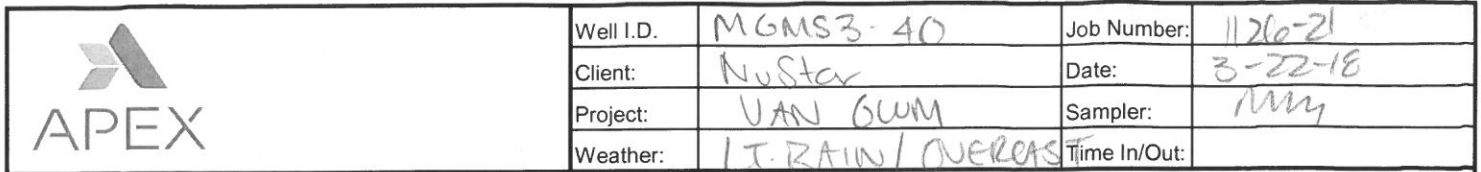 APEX
Well I.D. MGMS3-40 Job Number: 1126-21
Client: NuStar Date: 3-22-18
Project: VAN GWM Sampler:
Weather: LT. RAIN / OVERCAST Time In/Out: